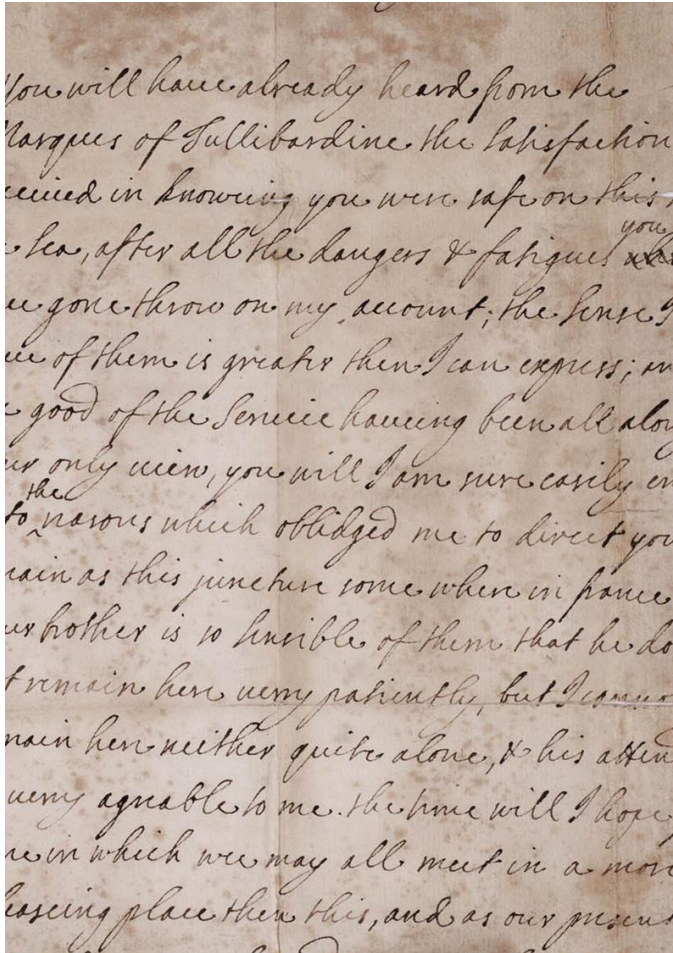 You will have already heard from the
Marques of Tullibardine the satisfaction
ceived in knowing you were safe on this
sea, after all the dangers & fatigues you
ve gone throw on my account; the sense I
ve of them is greater then I can express; an
good of the service haveing been all alon
ur only view, you will I am sure easily en
to the reasons which oblidged me to direct you
main as this juncture some where in france
ur brother is so sensible of them that he do
t remain here verry patiently, but I canno
main here neither quite alone, & his atten
verry agreable to me. the time will I hope
me in which wee may all meet in a more
leaseing place then this, and as our presen